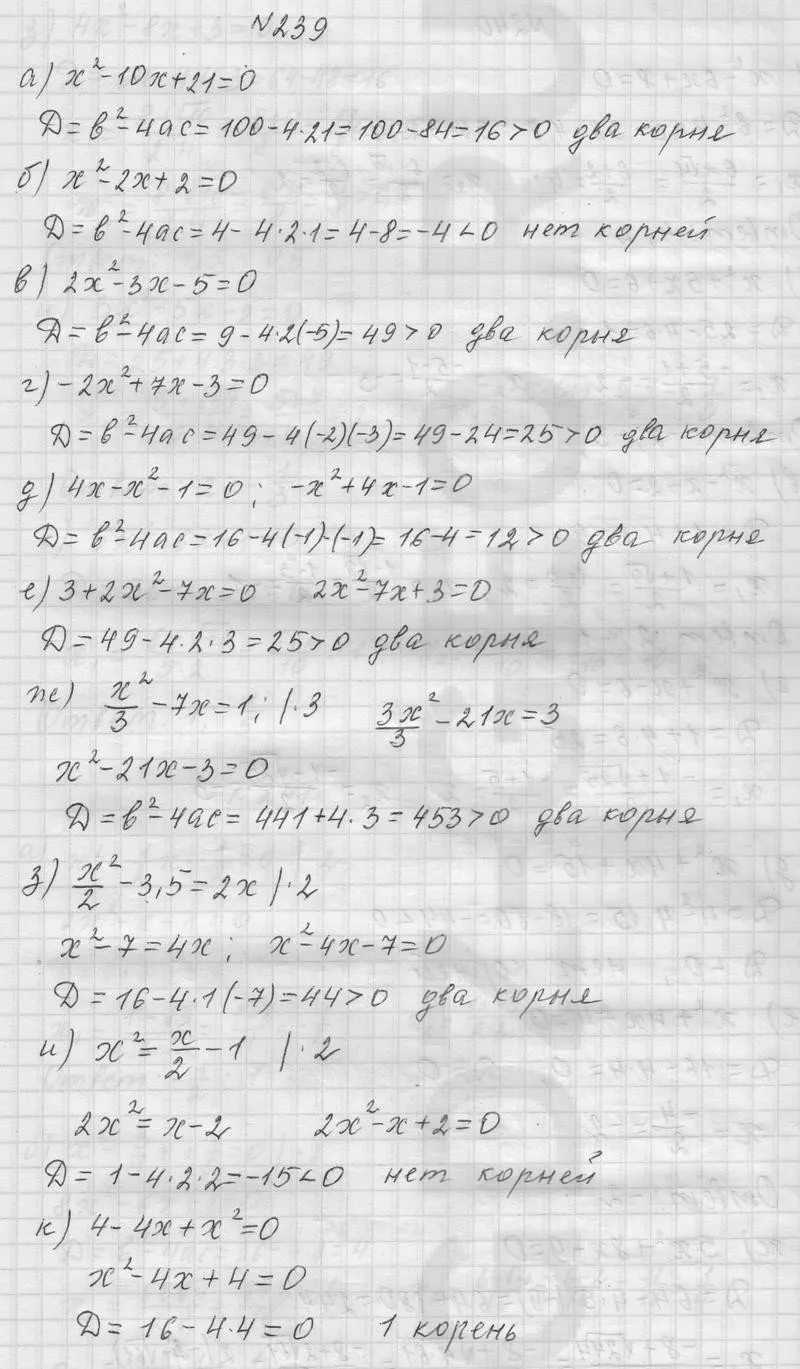 №239
а) x²-10x+21=0
Д=в²-4ac=100-4·21=100-84=16>0 два корня
б) x²-2x+2=0
Д=в²-4ac=4-4·2·1=4-8=-4<0 нет корней
в) 2x²-3x-5=0
Д=в²-4ac=9-4·2(-5)=49>0 два корня
г) -2x²+7x-3=0
Д=в²-4ac=49-4(-2)(-3)=49-24=25>0 два корня
д) 4x-x²-1=0; -x²+4x-1=0
Д=в²-4ac=16-4(-1)·(-1)=16-4=12>0 два корня
е) 3+2x²-7x=0 2x²-7x+3=0
Д=49-4·2·3=25>0 два корня
ж) x²/3-7x=1; |·3 3x²/3-21x=3
x²-21x-3=0
Д=в²-4ac=441+4·3=453>0 два корня
з) x²/2-3,5=2x |·2
x²-7=4x; x²-4x-7=0
Д=16-4·1(-7)=44>0 два корня
и) x²=x/2-1 |·2
2x²=x-2 2x²-x+2=0
Д=1-4·2·2=-15<0 нет корней
к) 4-4x+x²=0
x²-4x+4=0
Д=16-4·4=0 1 корень